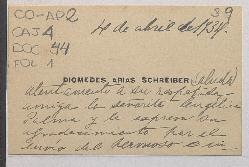 39
CO-AP2
CAJ 4
DOC 44
FOL 1
4 de abril de 1934.
DIOMEDES ARIAS SCHREIBER (saluda)
atentamente a su respetada
amiga la señorita Angélica
Palma y le expresa su
agradecimiento por el
envío del hermoso